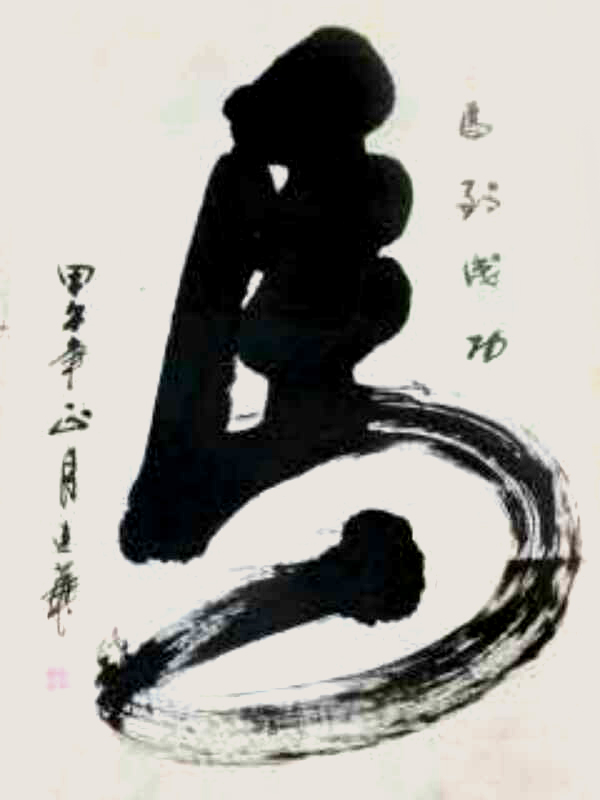 馬到成功
馬
甲午年正月建華